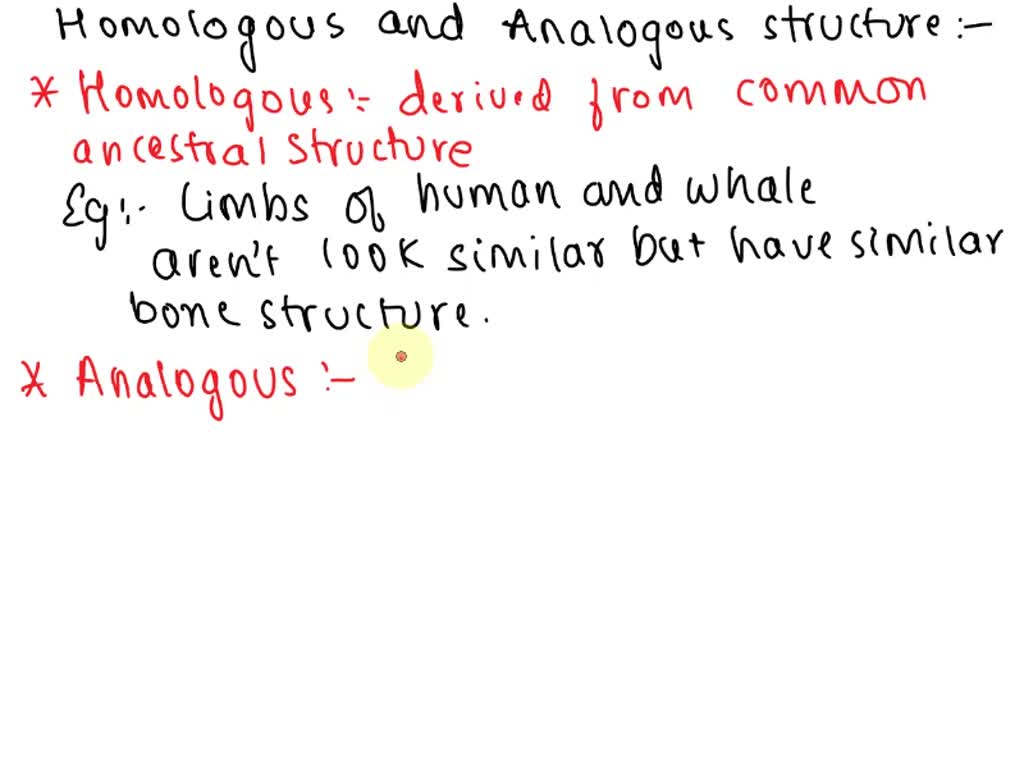 Homologous and Analogous structure :-
* Homologous :- derived from common
ancestral structure
Eg :- Limbs of human and whale
aren't look similar but have similar
bone structure.
* Analogous :-